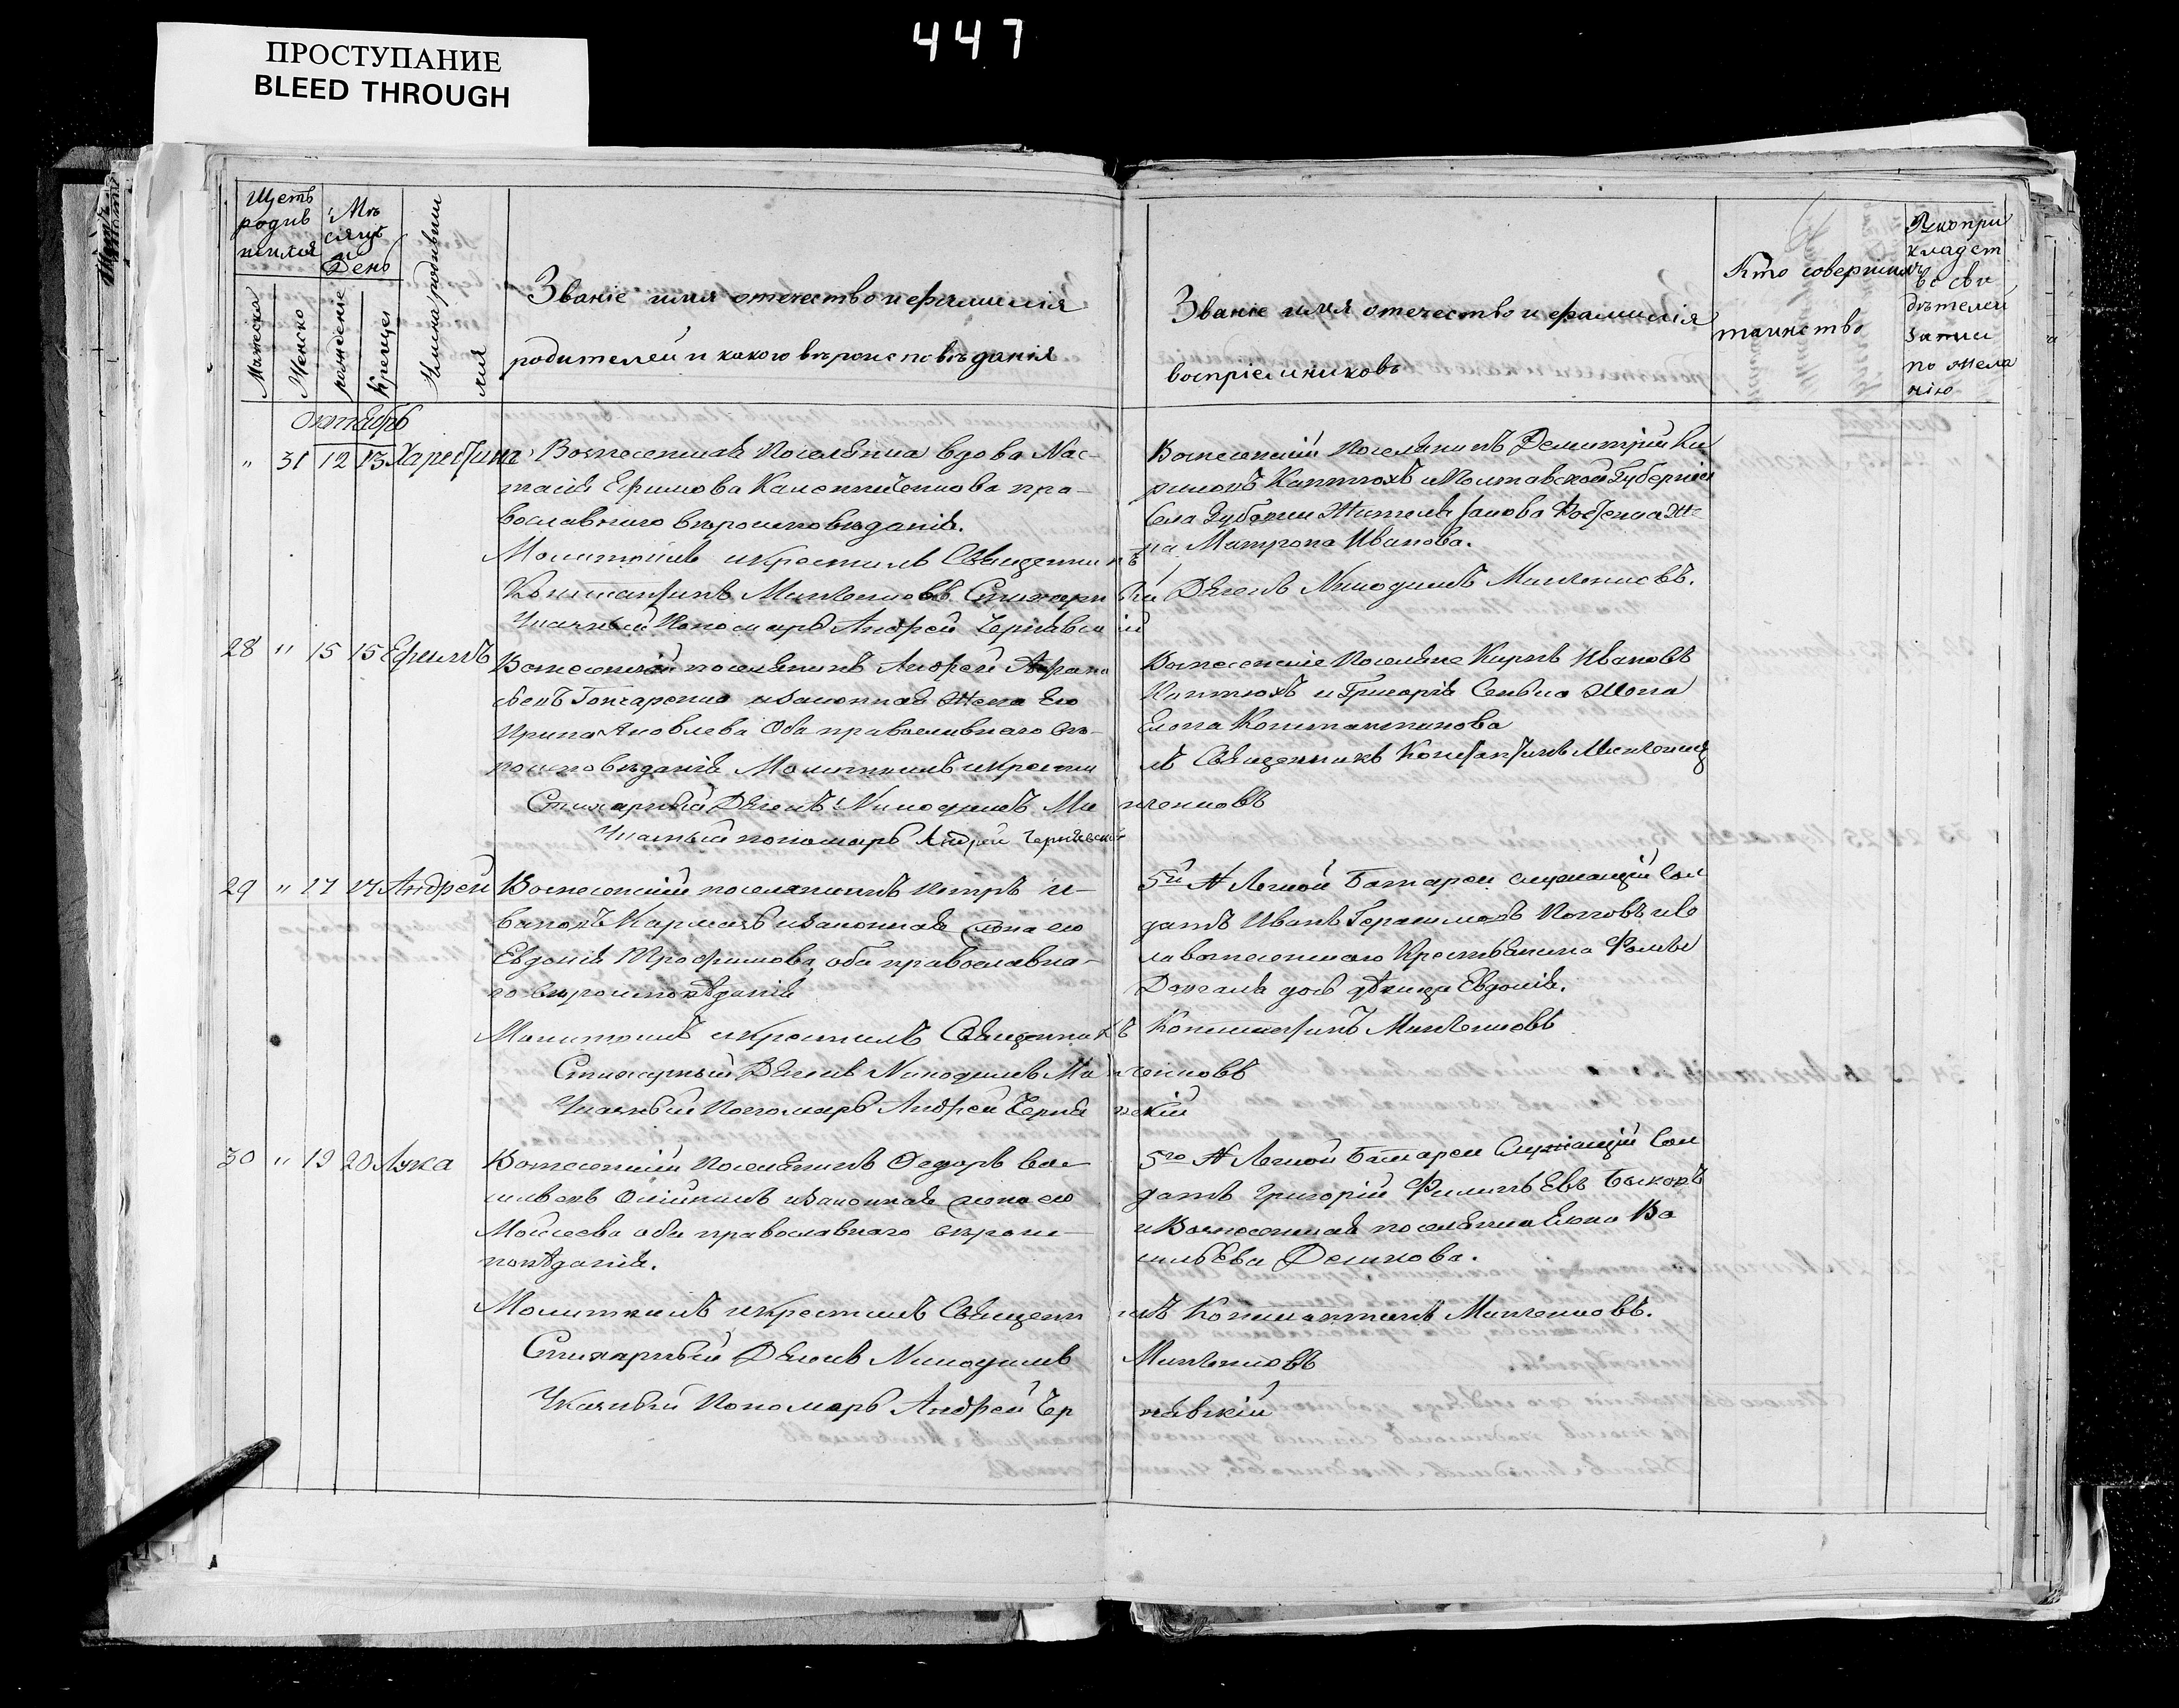 447
ПРОСТУПАНИЕ
BLEED THROUGH
Щетъ
родив
шихся
Мѣ
сяцъ
и
День
Мужеска
Женско
рожденіе
Крещен
Имена родивши
мся
Званіе имя отечество и фамилія
родителей и какого вѣроисповѣданія
Званіе имя отечество и фамилія
воспріемниковъ
Кто совершилъ
таинство
Рукопри
кладст
во сви
дѣтелей
записи
по жела
нію
Октябрь
" 31 12 13 Харестина
Вознесенская Поселянка вдова Нас-
тасія Ефимова православнаго вѣроисповѣданія.
Молитвилъ и крестилъ Священникъ
Константинъ Минченковъ Стихарный Дячекъ Никодимъ Минченковъ.
Указный Пономарь Андрей Чернявскій
Вознесенскій поселянинъ Демитрій Ки
риловъ Каптюхъ и Полтавской Губерніи
Села жителя жена Матрона Иванова.
28 " 15 15 Ефимъ
Вознесенскій поселянинъ Андрей Афана
сьевъ Гончаренко и законная жена его
Ирина Яковлева оба православнаго вѣ-
роисповѣданія Молитвилъ и крестилъ Священникъ Константинъ Минченковъ
Стихарный Дячекъ Никодимъ Минченковъ
Указный пономарь Андрей Чернявскій
Вознесенскіе Поселяне Кирилъ Ивановъ
Каптюхъ и Григорія жена
Елена Константинова
29 " 17 17 Андрей
Вознесенскій поселянинъ Петръ И-
вановъ Кармазь и законная жена его
Евдокія Трофимова оба православна-
го вѣроисповѣданія
Молитвилъ и крестилъ Священникъ Константинъ Минченковъ
Стихарный Дячекъ Никодимъ Минченковъ
Указный Пономарь Андрей Чернявскій
5й № Легкой Батареи служащій Сол
датъ Иванъ Герасимовъ Поповъ и Се
ла вознесенскаго Крестьянина Фомы
дочь дѣвица Евдокія.
30 " 19 20 Лука
Вознесенскій Поселянинъ Федоръ Ва
сильевъ Олійникъ и законная жена его
Мойсеева оба православнаго вѣроис-
повѣданія.
Молитвилъ и крестилъ Священникъ Константинъ Минченковъ.
Стихарный Дячекъ Никодимъ Минченковъ
Указный Пономарь Андрей Чернявскій
5го № Легкой Батареи Служащій Сол
датъ Григорій Филипьевъ Быковъ
и Вознесенская поселянка Елена Ва
сильева Деликова.